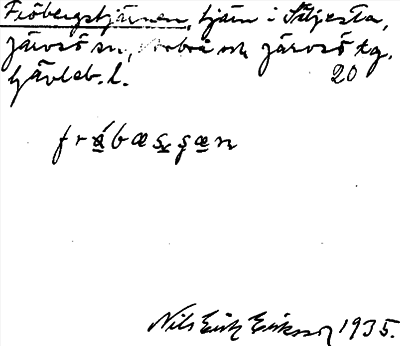 Fröbergstjärnen, tjärn i Siljesta,
järvsö sn, Norbo ock järvsö tg.
Gävleb. l. 20
frábæsgæn
Nils Erik Eriksson 1935.